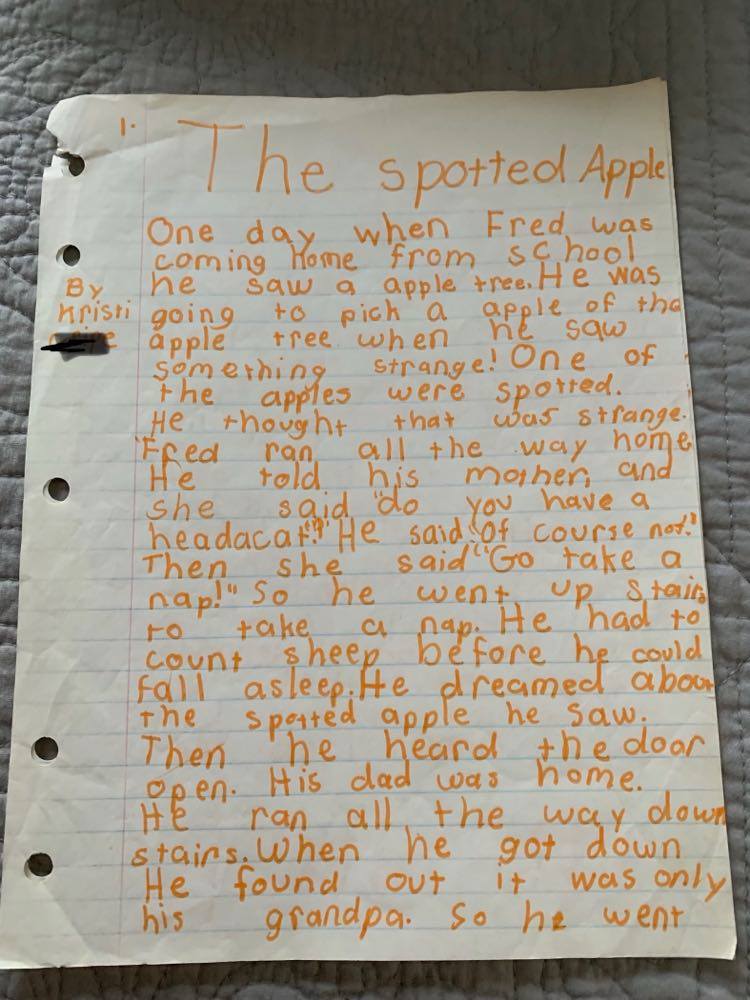 1. The spotted Apple
By
Kristi
One day when Fred was
coming Home from school
he saw a apple tree. He was
going to pick a apple of the
apple tree when he saw
something strange! One of
the apples were spotted.
He thought that was strange.
Fred ran all the way home
He told his mother, and
she said "do you have a
headacat?" He said "Of course not."
Then she said "Go take a
nap!" So he went up stairs
to take a nap. He had to
count sheep before he could
fall asleep. He dreamed about
the spotted apple he saw.
Then he heard the door
open. His dad was home.
He ran all the way down
stairs. When he got down
He found out it was only
his grandpa. So he went